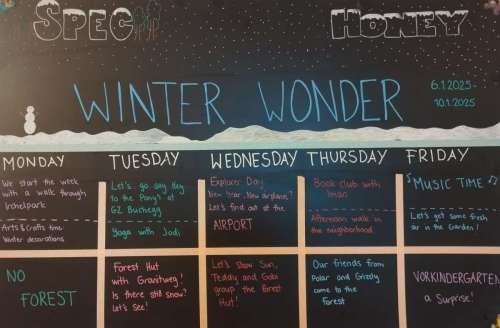 SPEC
HONEY
WINTER WONDER
6.1.2025-
10.1.2025
MONDAY
We start the week
with a walk through
Irchelpark
Arts & Crafts time
Winter decorations
NO
FOREST
TUESDAY
Let's go say Hey
to the Pony's at
GZ Buchegg
Yoga with Jodi
Forest Hut
with Gravitweg!
Is there still snow?
Let's See!
WEDNESDAY
Explorer Day
New Year, New airplane?
Let's find out at the
AIRPORT
Let's show Sun,
Teddy and Gobi
group the Great
Hut!
THURSDAY
Book club with
Imac
Afternoon walk in
the neighborhood
Our friends from
Polar and Grizzly
come to the
Forest
FRIDAY
MUSIC TIME
Let's get some fresh
air in the Garden!
VORKINDERGARTEN
a Surprise!